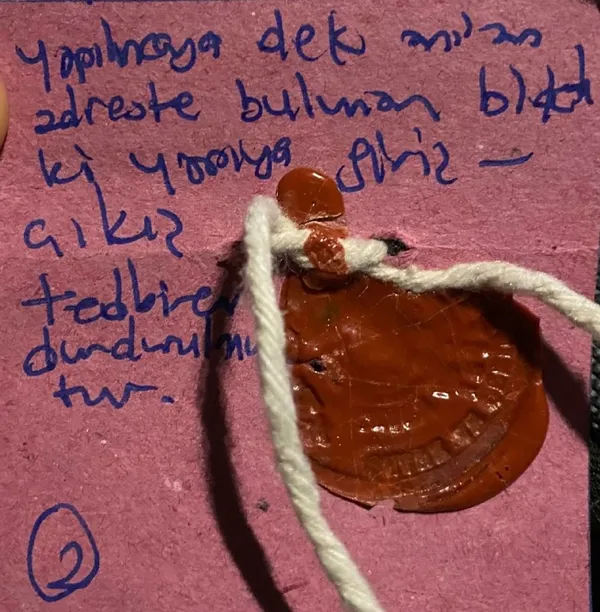 yapılmaya dek anılan
adreste bulunan blokta
ki yapıya giriş –
çıkış
tedbiren
durdurulmuş
tur.
2